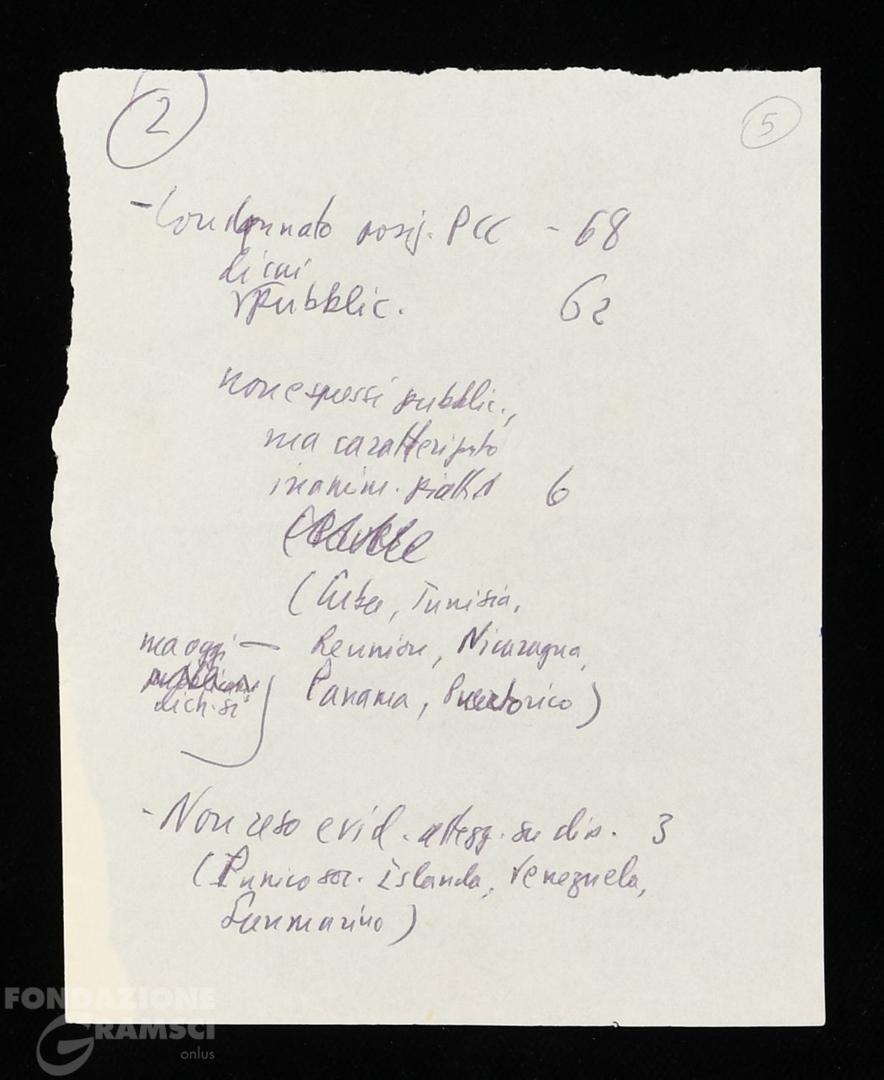 2
5
- Condannato posiz. PCC - 68
di cui
pubblic. 62
non espressi pubblic.,
ma caratterizzato
inanim. piatt. 6
(Cuba, Tunisia,
ma oggi — Reunion, Nicaragua,
dich. si Panama, Puertorico)
- Non reso evid. attegg. su dis. 3
(P. unico soc. Islanda, Venezuela,
Sanmarino)
FONDAZIONE
GRAMSCI
onlus